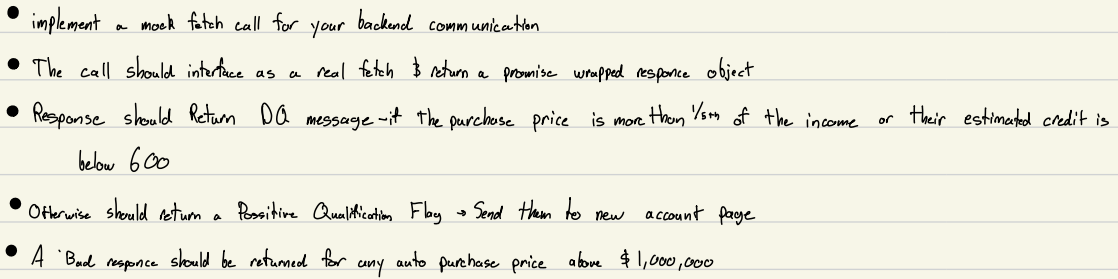 • implement a mock fetch call for your backend communication
• The call should interface as a real fetch & return a promise wrapped responce object
• Response should Return DQ message - if the purchase price is more than 1/5th of the income or their estimated credit is
below 600
• Otherwise should return a Possitive Qualification Flag → Send them to new account page
• A 'Bad responce should be returned for any auto purchase price above $1,000,000